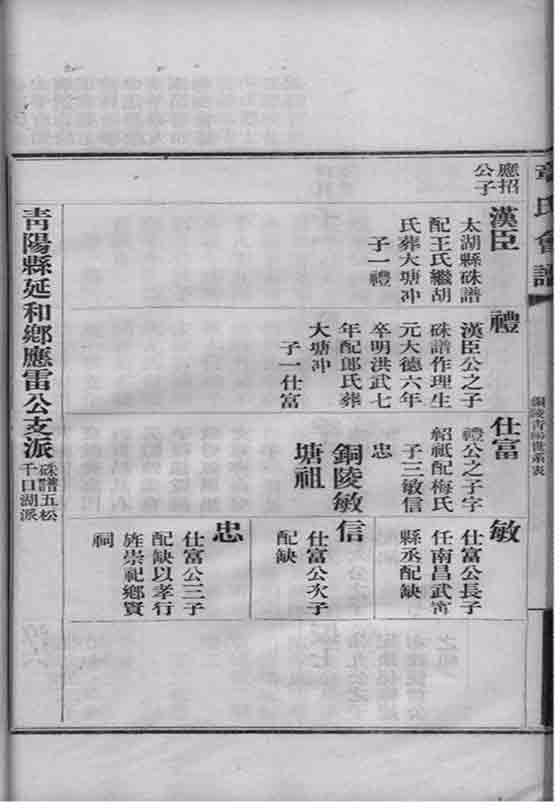 章氏會譜
銅陵青陽世系表
應招
公子
漢臣
太湖縣硃譜
配王氏繼胡
氏葬大塘冲
子一禮
禮
漢臣公之子
硃譜作理生
元大德六年
卒明洪武七
年配郎氏葬
大塘冲
子一仕富
仕富
禮公之子字
紹祗配梅氏
子三敏信
忠
銅陵敏
塘祖
敏
仕富公長子
任南昌武甯
縣丞配缺
信
仕富公次子
配缺
忠
仕富公三子
配缺以孝行
旌崇祀鄉賢
祠
青陽縣延和鄉應雷公支派
硃譜五松
千口湖派